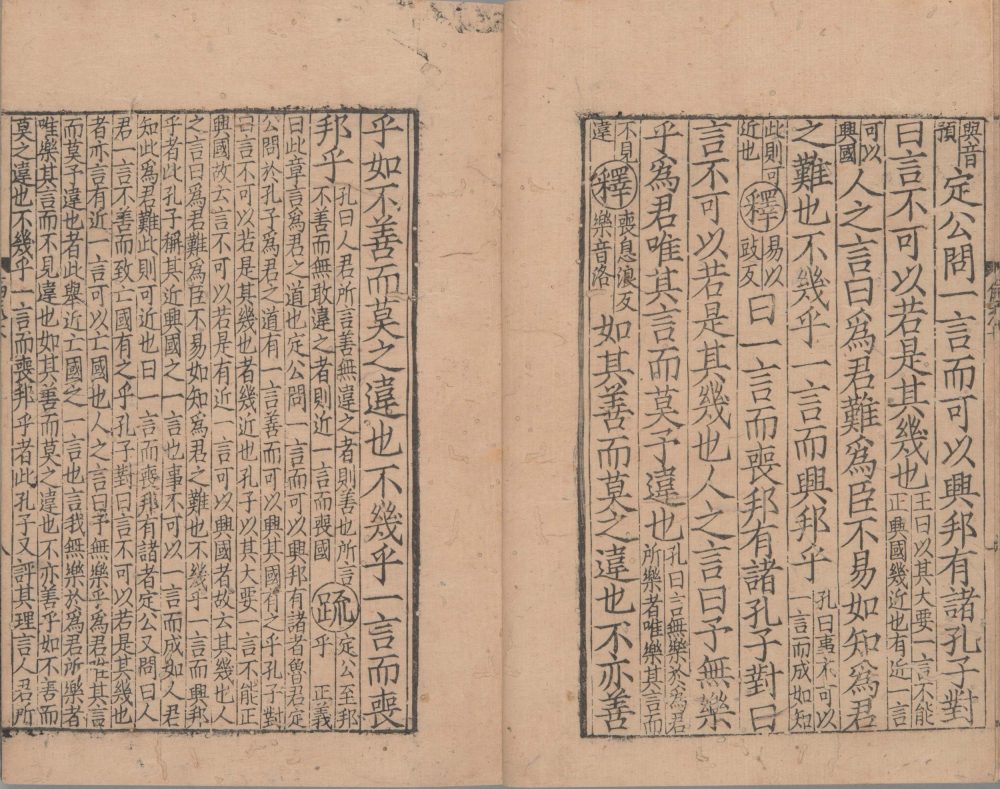 與音預定公問一言而可以興邦有諸孔子對
曰言不可以若是其幾也王曰以其大要一言不能正興國幾近也有近一言
可以興國人之言曰爲君難爲臣不易如知爲君
之難也不幾乎一言而興邦乎孔曰事不可以一言而成如知
此則可近也釋易以豉反曰一言而喪邦有諸孔子對曰
言不可以若是其幾也人之言曰予無樂
乎爲君唯其言而莫予違也孔曰言無樂於爲君所樂者唯樂其言而
不見違釋喪息浪反樂音洛如其善而莫之違也不亦善
乎如不善而莫之違也不幾乎一言而喪
邦乎孔曰人君所言善無違之者則善也所言不善而無敢違之者則近一言而喪國疏定公至邦乎 正義
曰此章言爲君之道也定公問一言而可以興邦有諸者魯君定
公問於孔子爲君之道有一言善而可以興其國有之乎孔子對
曰言不可以若是其幾也者幾近也孔子以其大要一言不能正
興國故云言不可以若是有近一言可以興國者故云其幾也人
之言曰爲君難爲臣不易如知爲君之難也不幾乎一言而興邦
乎者此孔子稱其近興國之一言也事不可以一言而成如人君
知此爲君難此則可近也曰一言而喪邦有諸者定公又問曰人
君一言不善而致亡國有之乎孔子對曰言不可以若是其幾也
者亦言有近一言可以亡國也人之言曰予無樂乎爲君唯其言
而莫予違也者此舉近亡國之一言也言我無樂於爲君所樂者
唯樂其言而不見違也如其善而莫之違也不亦善乎如不善而
莫之違也不幾乎一言而喪邦乎者此孔子又評其理言人君所